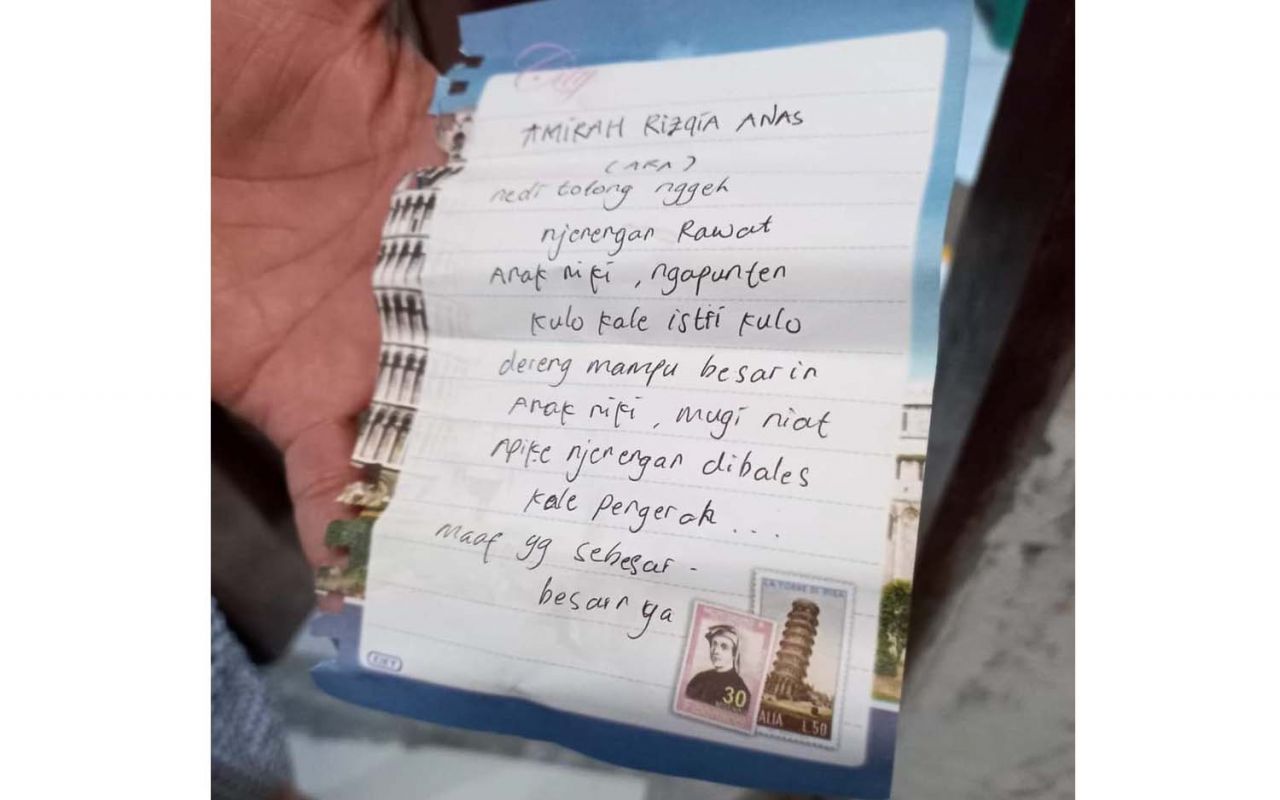 AMIRAH RIZQIA ANAS
(ARA)
nedi tolong nggeh
njenengan Rawat
Anak niki, ngapunten
kulo kale istri kulo
dereng mampu besarin
Anak niki, mugi niat
Apike njenengan dibales
kale pengeran...
maaf yg sebesar-
besarnya
LA TORRE DI PISA
30
ALIA L.50